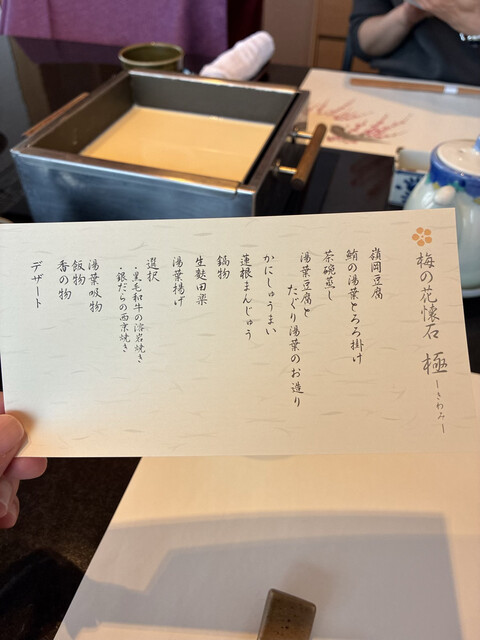 梅の花懐石 極 ーきわみー
嶺岡豆腐
鮪の湯葉とろろ掛け
茶碗蒸し
湯葉豆腐と
たぐり湯葉のお造り
かにしゅうまい
蓮根まんじゅう
鍋物
生麩田楽
湯葉揚げ
選択
・黒毛和牛の溶岩焼き
・銀だらの西京焼き
湯葉吸物
飯物
香の物
デザート